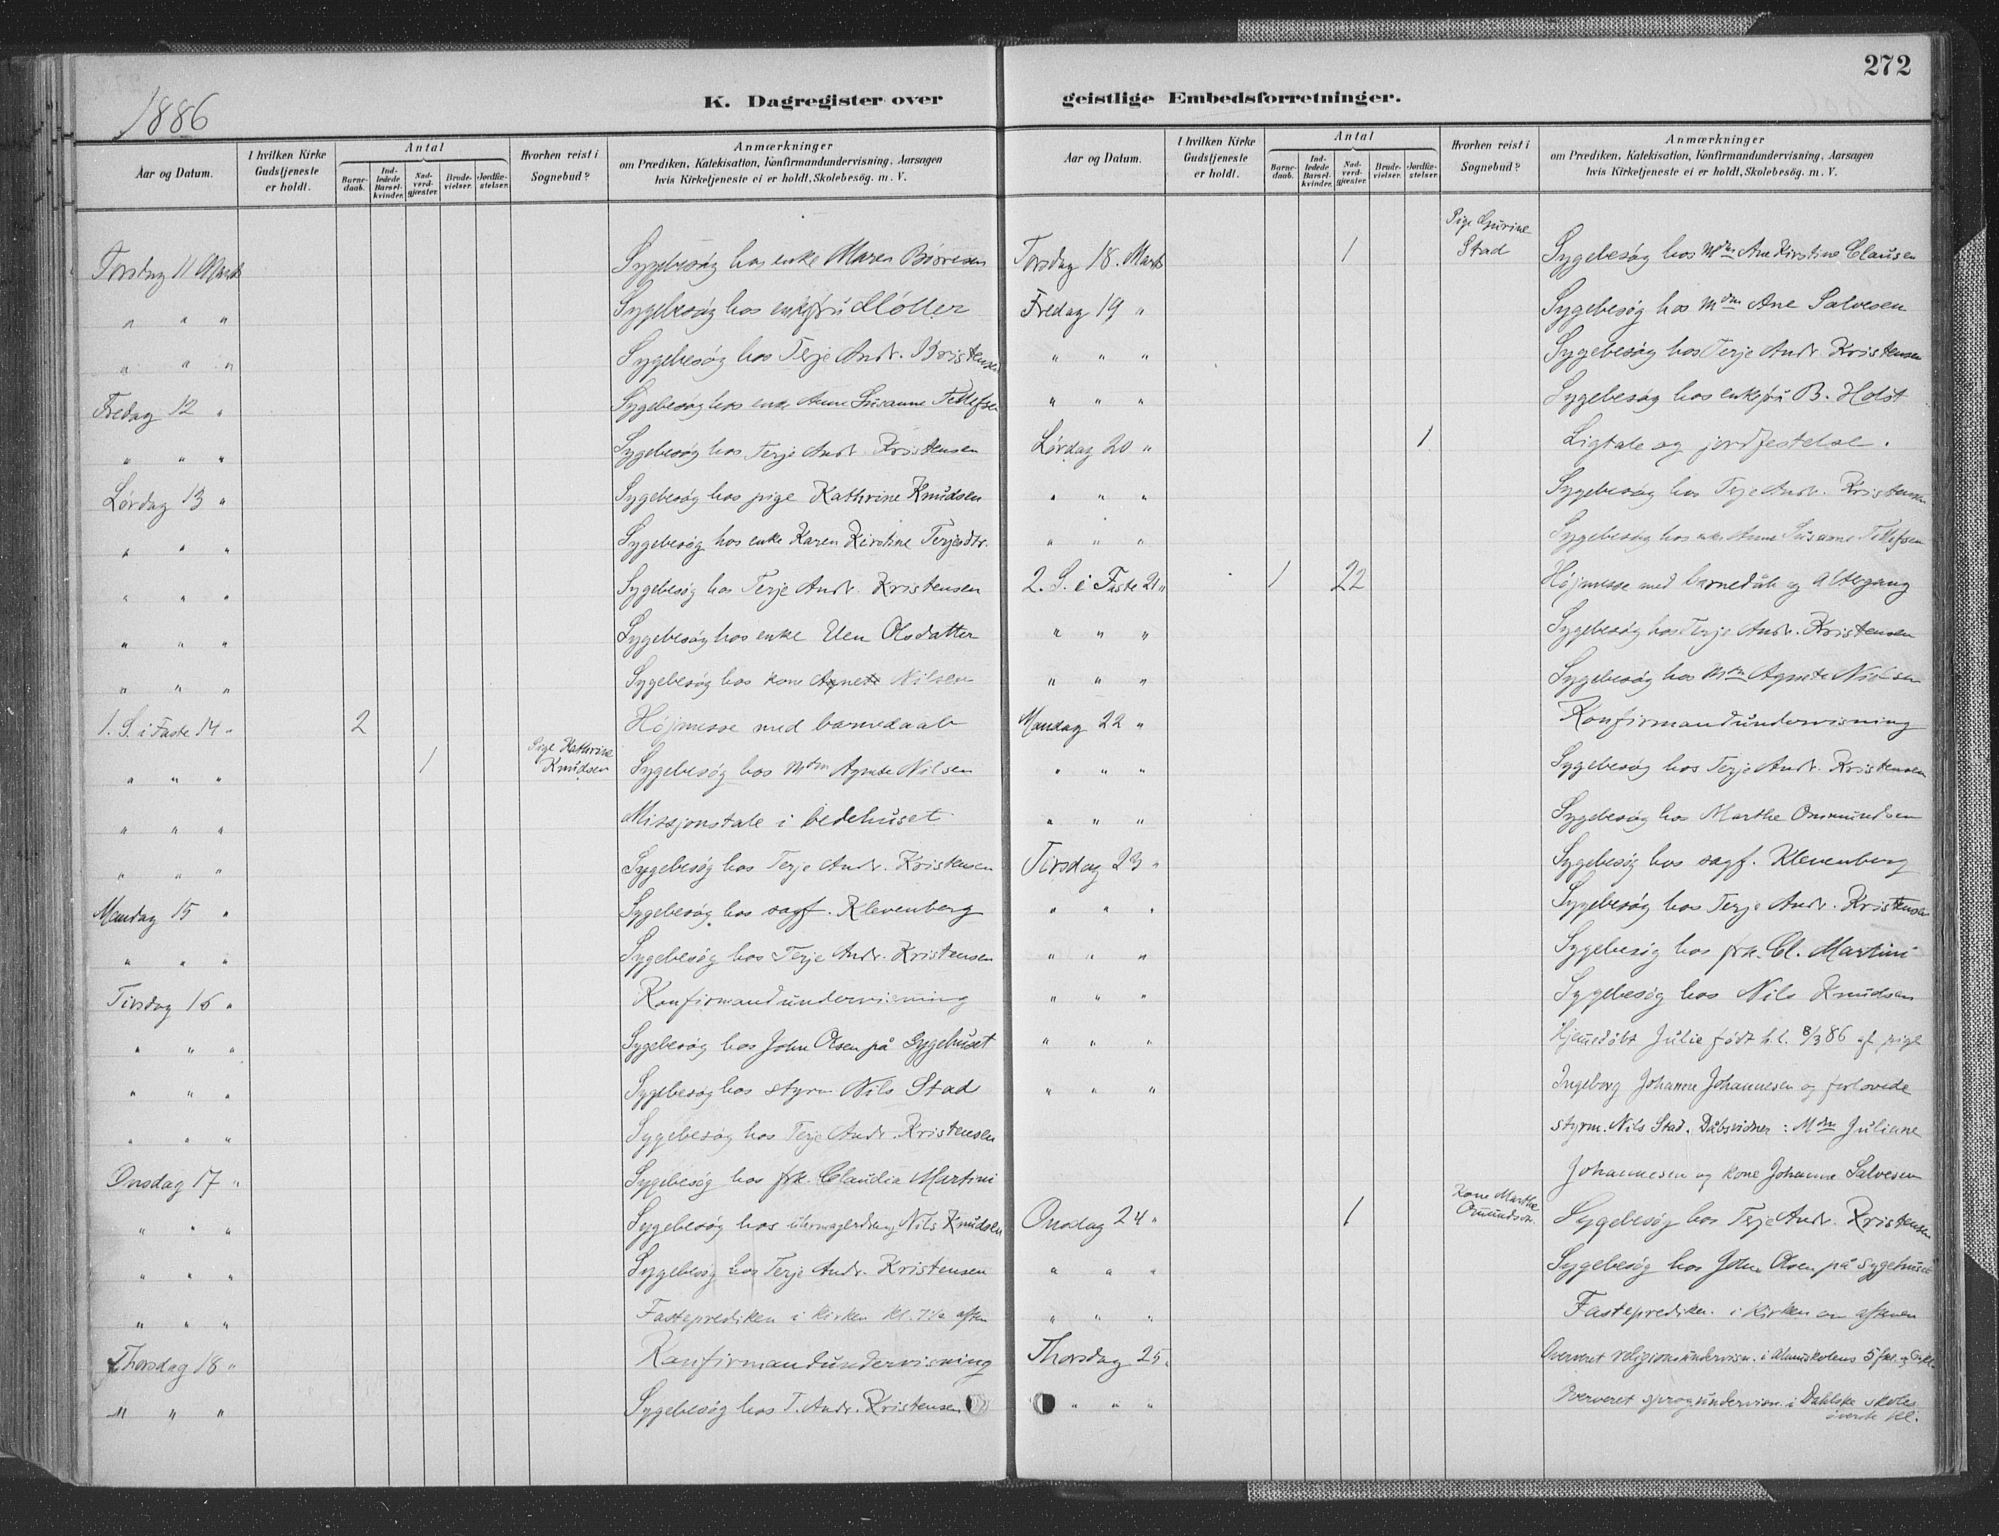 272
1886
K. Dagregister over
geistlige Embedsforretninger.
Aar og Datum.
I hvilken Kirke Gudstjeneste er holdt.
Antal
Barnedaab.
Indledede Barselkvinder.
Nadverdgjester.
Brudevielser.
Jordfæstelser.
Hvorhen reist i Sognebud?
Anmærkninger
om Prædiken, Katekisation, Konfirmandundervisning, Aarsagen
hvis Kirketjeneste ei er holdt, Skolebesög. m. V.
Torsdag 11 Marts Sygebesøg hos enke Maren Börresen
" " " Sygebesøg hos enkefru Møller
" " " Sygebesøg hos Terje Andr. Kristensen
Fredag 12 " Sygebesøg hos enke Anne Susanne Tellefsen
" " " Sygebesøg hos Terje Andr. Kristensen
Lørdag 13 " Sygebesøg hos pige Kathrine Knudsen
" " " Sygebesøg hos enke Karen Kirstine Terjesdtr.
" " " Sygebesøg hos Terje Andr. Kristensen
" " " Sygebesøg hos enke Olsdatter
" " " Sygebesøg hos kone Agnete Nilsen
1. S. i Faste 14 " 2 Højmesse med barnedaab
" " " 1 Pige Kathrine Knudsen Sygebesøg hos Mdm Agnete Nilsen
" " " Missjonstale i bedehuset
" " " Sygebesøg hos Terje Andr. Kristensen
Mandag 15 " Sygebesøg hos sagf. Klevenberg
" " " Sygebesøg hos Terje Andr. Kristensen
Tirsdag 16 " Konfirmandundervisning
" " " Sygebesøg hos John Olsen på Sygehuset
" " " Sygebesøg hos styrm Nils Stad
" " " Sygebesøg hos Terje Andr. Kristensen
Onsdag 17 " Sygebesøg hos frk. Claudia Martini
" " Sygebesøg hos Nils Knudsen
" " " Sygebesøg hos Terje Andr. Kristensen
" " " Fasteprediken i kirken kl. 7 1/2 aften
Thorsdag 18 " Konfirmandundervisning
" " " Sygebesøg hos T. Andr. Kristensen
Aar og Datum.
I hvilken Kirke Gudstjeneste er holdt.
Antal
Barnedaab.
Indledede Barselkvinder.
Nadverdgjester.
Brudevielser.
Jordfæstelser.
Hvorhen reist i Sognebud?
Anmærkninger
om Prædiken, Katekisation, Konfirmandundervisning, Aarsagen
hvis Kirketjeneste ei er holdt, Skolebesög. m. V.
Torsdag 18. Marts 1 Pige Gurine Stad Sygebesøg hos Mdm Ane Kirstine Clausen
Fredag 19 " Sygebesøg hos Mdm Ane Salvesen
" " " Sygebesøg hos Terje Andr. Kristensen
" " " Sygebesøg hos enkefru B. Holst
Lørdag 20 " 1 Ligtale og jordfestelse.
" " " Sygebesøg hos Terje Andr. Kristensen
" " " Sygebesøg hos enke Anne Susanne Tellefsen
2. S. i Faste 21 " 1 22 Højmesse med barnedåb og altergang
" " " Sygebesøg hos Terje Andr. Kristensen
" " " Sygebesøg hos Mdm Agnete Nielsen
Mandag 22 " Konfirmandundervisning
" " " Sygebesøg hos Terje Andr. Kristensen
" " " Sygebesøg hos Marthe Ommundsen
Tirsdag 23 " Sygebesøg hos sagf. Klevenberg
" " " Sygebesøg hos Terje Andr. Kristensen
" " " Sygebesøg hos frk. Cl. Martini
" " " Sygebesøg hos Nils Knudsen
" " " Hjemedøbt Julie født h.l. 8/3 86 af pige
" " " Ingeborg Johanne Johannesen og forlovede
styrm. Nils Stad. Dåbsvidner: Mdm Juliane
Johannesen og kone Johanne Salvesen
Onsdag 24 " 1 Kone Marthe Omundsen. Sygebesøg hos Terje Andr. Kristensen
" " " Sygebesøg hos John Olsen på sygehuset
" " " Fasteprediken i kirken om aftenen
Thorsdag 25. Oververet religionsundervisn. i 5
" " " Oververet sprogundervisn. i Dahlske skoles
øverste kl.